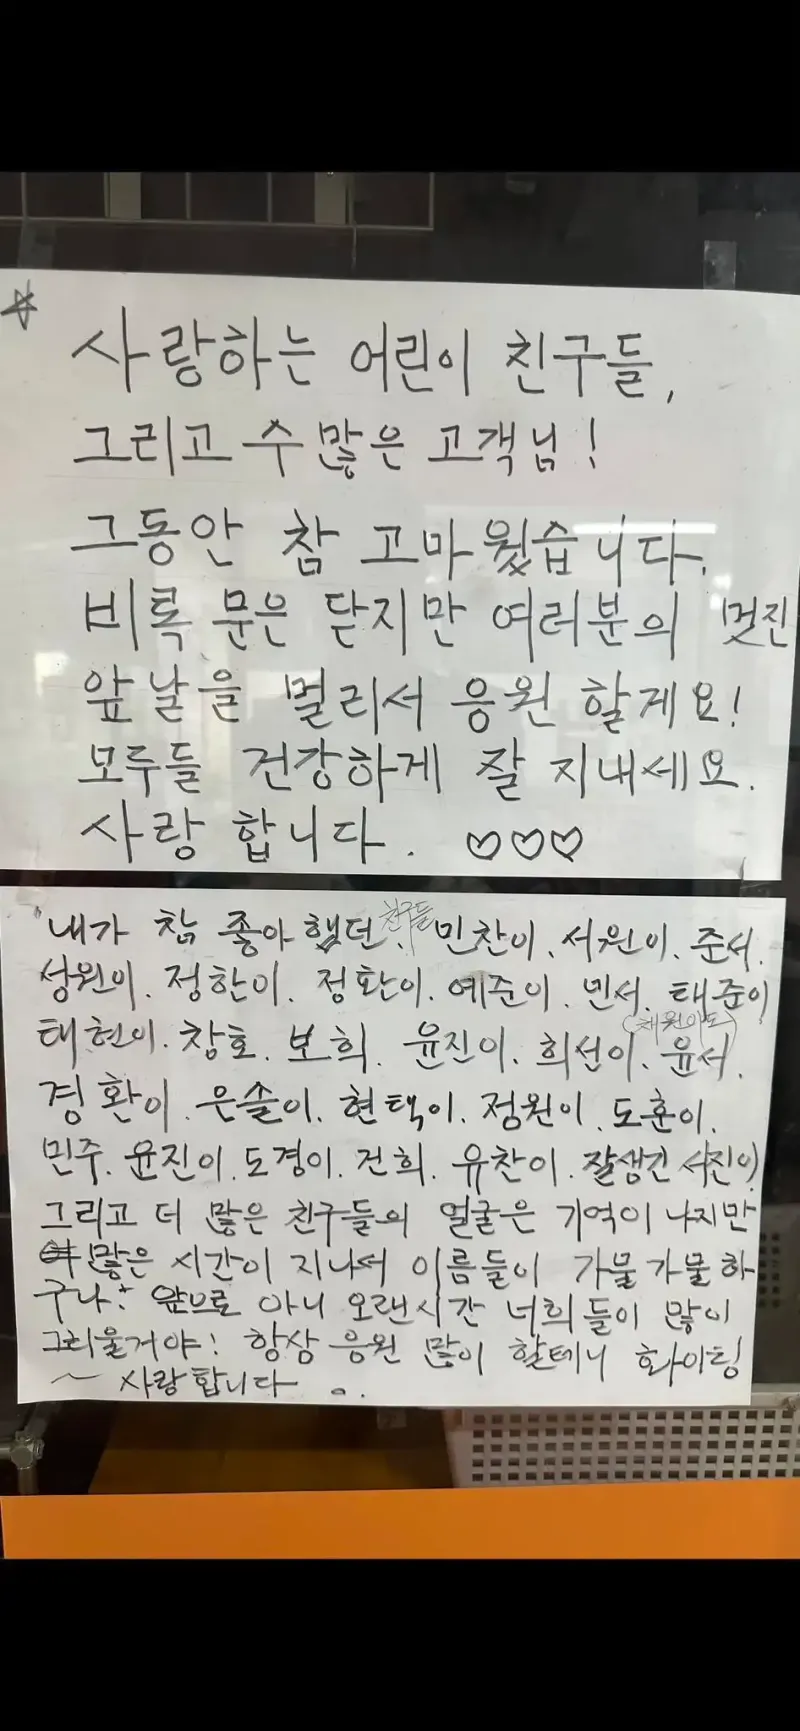 사랑하는 어린이 친구들,
그리고 수많은 고객님!
그동안 참 고마웠습니다.
비록 문은 닫지만 여러분의 멋진
앞날을 멀리서 응원 할게요!
모두들 건강하게 잘 지내세요.
사랑 합니다. ♡♡♡
내가 참 좋아했던 친구들. 민찬이. 서원이. 준서.
성원이. 정한이. 정환이. 예준이. 민서. 태준이
태현이. 창호. 보희. 윤진이. 희선이. 윤서. (채원이도)
경환이. 은솔이. 현택이. 정원이. 도훈이.
민주. 윤진이. 도경이. 건희. 유찬이. 잘생긴 서진이
그리고 더 많은 친구들의 얼굴은 기억이 나지만
많은 시간이 지나서 이름들이 가물가물하
구나! 앞으로 아니 오랜시간 너희들이 많이
그리울거야! 항상 응원 많이 할테니 화이팅
~ 사랑합니다 ..